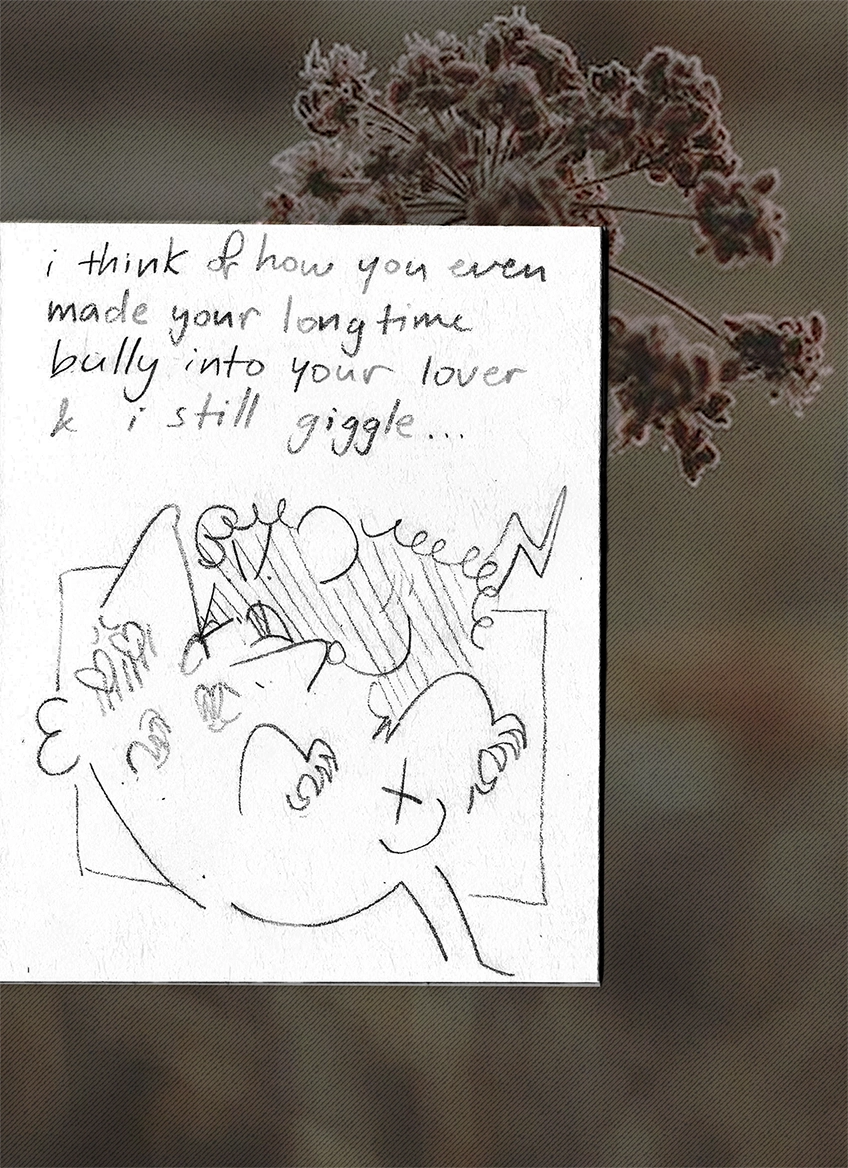 i think of how you even
made your longtime
bully into your lover
& i still giggle...